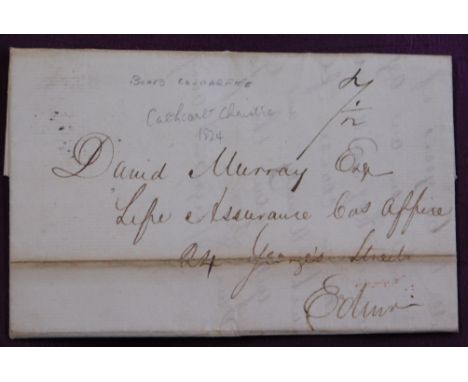 Cathcart Christie
1824
David Murray Esq
Life Assurance Cos Office
24 George's Street
Edinr